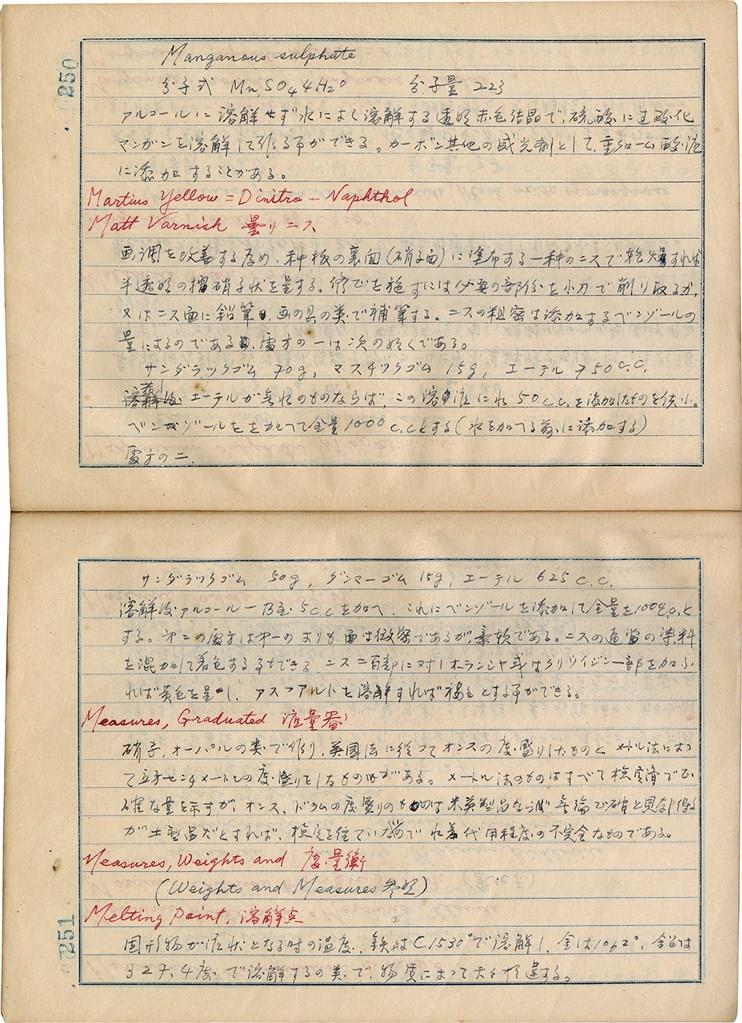 250
Manganous sulphate
分子式 MnSO₄4H₂O 分子量 223
アルコールに溶解せず水によく溶解する透明赤色結晶で、硫酸に過酸化
マンガンを溶解して作る事ができる。カーボン其他の感光剤として、重クローム酸液
に添加することがある。
Martius Yellow = Dinitro-Naphthol
Matt Varnish 曇りニス
画調を改善する為め、種板の裏面(硝子面)に塗布する一種のニスで乾燥すれば
半透明の摺硝子状を呈する。修整を施すには必要の部分を小刀で削り取るか、
又はニス面に鉛筆、画の具の類で補筆する。ニスの粗密は添加するベンゾールの
量によるのである、処方の一は次の如くである。
サンダラックゴム 70g, マスチックゴム 15g, エーテル 750c.c.
溶解後 エーテルが のものならば、この溶液に水 50c.c.を添加したものを
ベンゾールを加へて全量1000c.c.とする(水を加へる前に添加する)
処方の二.
サンダラックゴム 50g, ダンマーゴム 15g, エーテル 625c.c.
溶解後アルコール一乃至5c.c.を加へ、これにベンゾールを添加して全量を1000c.c.と
する。第二の処方は第一のよりも面は微密であるが、柔軟である。ニスの適当の染料
を混加して着色する事もできる、ニス二百部に対し 一部を加ふ
れば黄色を呈し、アスファルトを溶解すれば褐色とする事ができる。
Measures, Graduated 液量器
硝子、オーパルの類で作り、英国法に従ってオンスの度盛りしたものとメートル法によっ
て立方センチメートルの度盛りをしたものがある。メートル法のものはすべて検定済で正
確な量を示すが、オンス、ドラムの度盛りのものは米英製品ならば無論
が 製品だとすれば、検定を経ていないので 代用程度の不完全なものである。
Measures, Weights and 度量衡
(Weights and Measures 参照)
Melting Point, 溶解点
固形物が液状となる時の温度、鉄はC1530°で溶解し、金は1062°、鉛は
327.4度で溶解するの類で、物質によって大を する。
251